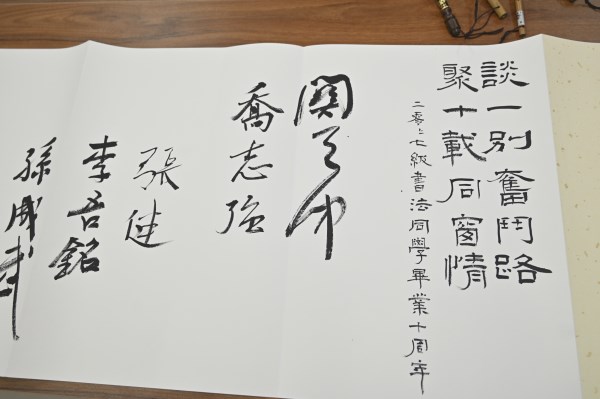 談一別奮鬥路
聚十載同窗情
二零零七級書法同學畢業十周年
喬志強
張健
李吾銘
孫成武